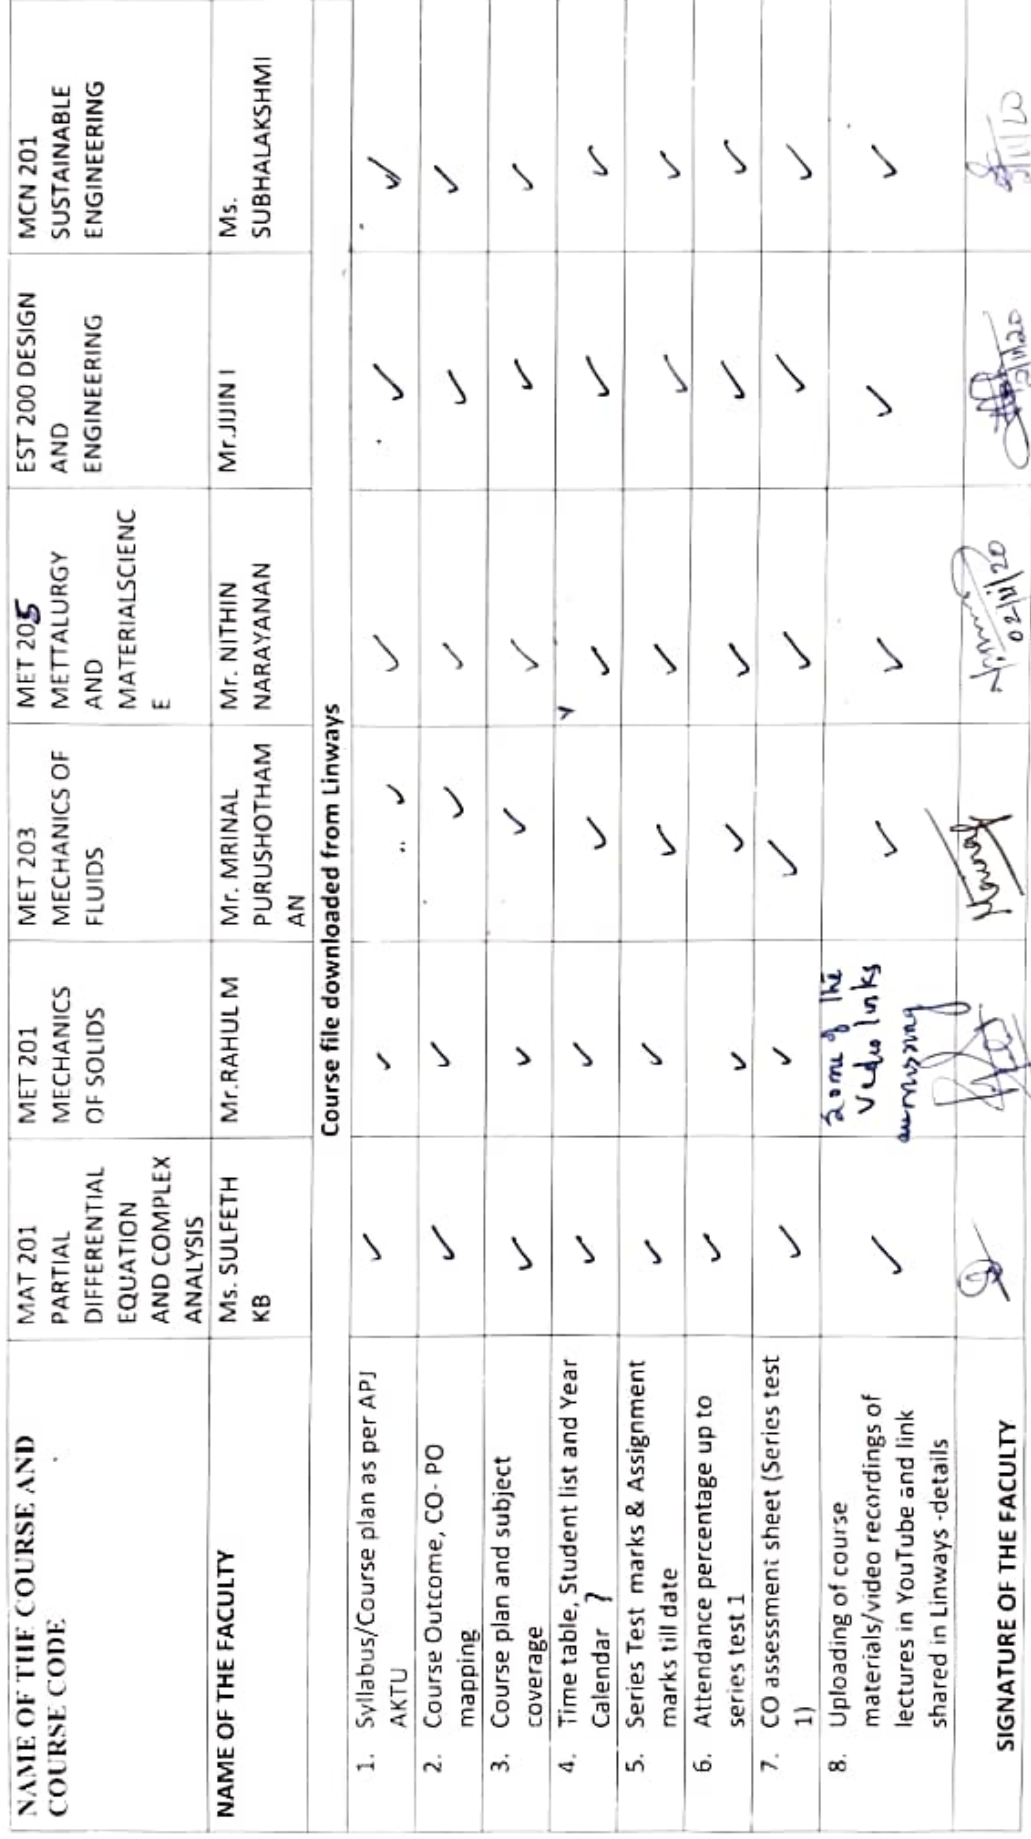 NAME OF THE COURSE AND
COURSE CODE
MAT 201
PARTIAL
DIFFERENTIAL
EQUATION
AND COMPLEX
ANALYSIS
MET 201
MECHANICS
OF SOLIDS
MET 203
MECHANICS OF
FLUIDS
MET 205
METTALURGY
AND
MATERIALSCIENC
E
EST 200 DESIGN
AND
ENGINEERING
MCN 201
SUSTAINABLE
ENGINEERING
NAME OF THE FACULTY
Ms. SULFETH
KB
Mr.RAHUL M
Mr. MRINAL
PURUSHOTHAM
AN
Mr. NITHIN
NARAYANAN
Mr.JIJIN I
Ms.
SUBHALAKSHMI
Course file downloaded from Linways
1. Syllabus/Course plan as per APJ
AKTU
✓ ✓ ✓ ✓ ✓ ✓
2. Course Outcome, CO- PO
mapping
✓ ✓ ✓ ✓ ✓ ✓
3. Course plan and subject
coverage
✓ ✓ ✓ ✓ ✓ ✓
4. Time table, Student list and Year
Calendar ?
✓ ✓ ✓ ✓ ✓ ✓
5. Series Test marks & Assignment
marks till date
✓ ✓ ✓ ✓ ✓ ✓
6. Attendance percentage up to
series test 1
✓ ✓ ✓ ✓ ✓ ✓
7. CO assessment sheet (Series test
1)
✓ ✓ ✓ ✓ ✓ ✓
8. Uploading of course
materials/video recordings of
lectures in YouTube and link
shared in Linways -details
✓
Some of the
Vedio links
are missing
✓ ✓ ✓ ✓
SIGNATURE OF THE FACULTY
02/11/20
2/11/20
2/11/20